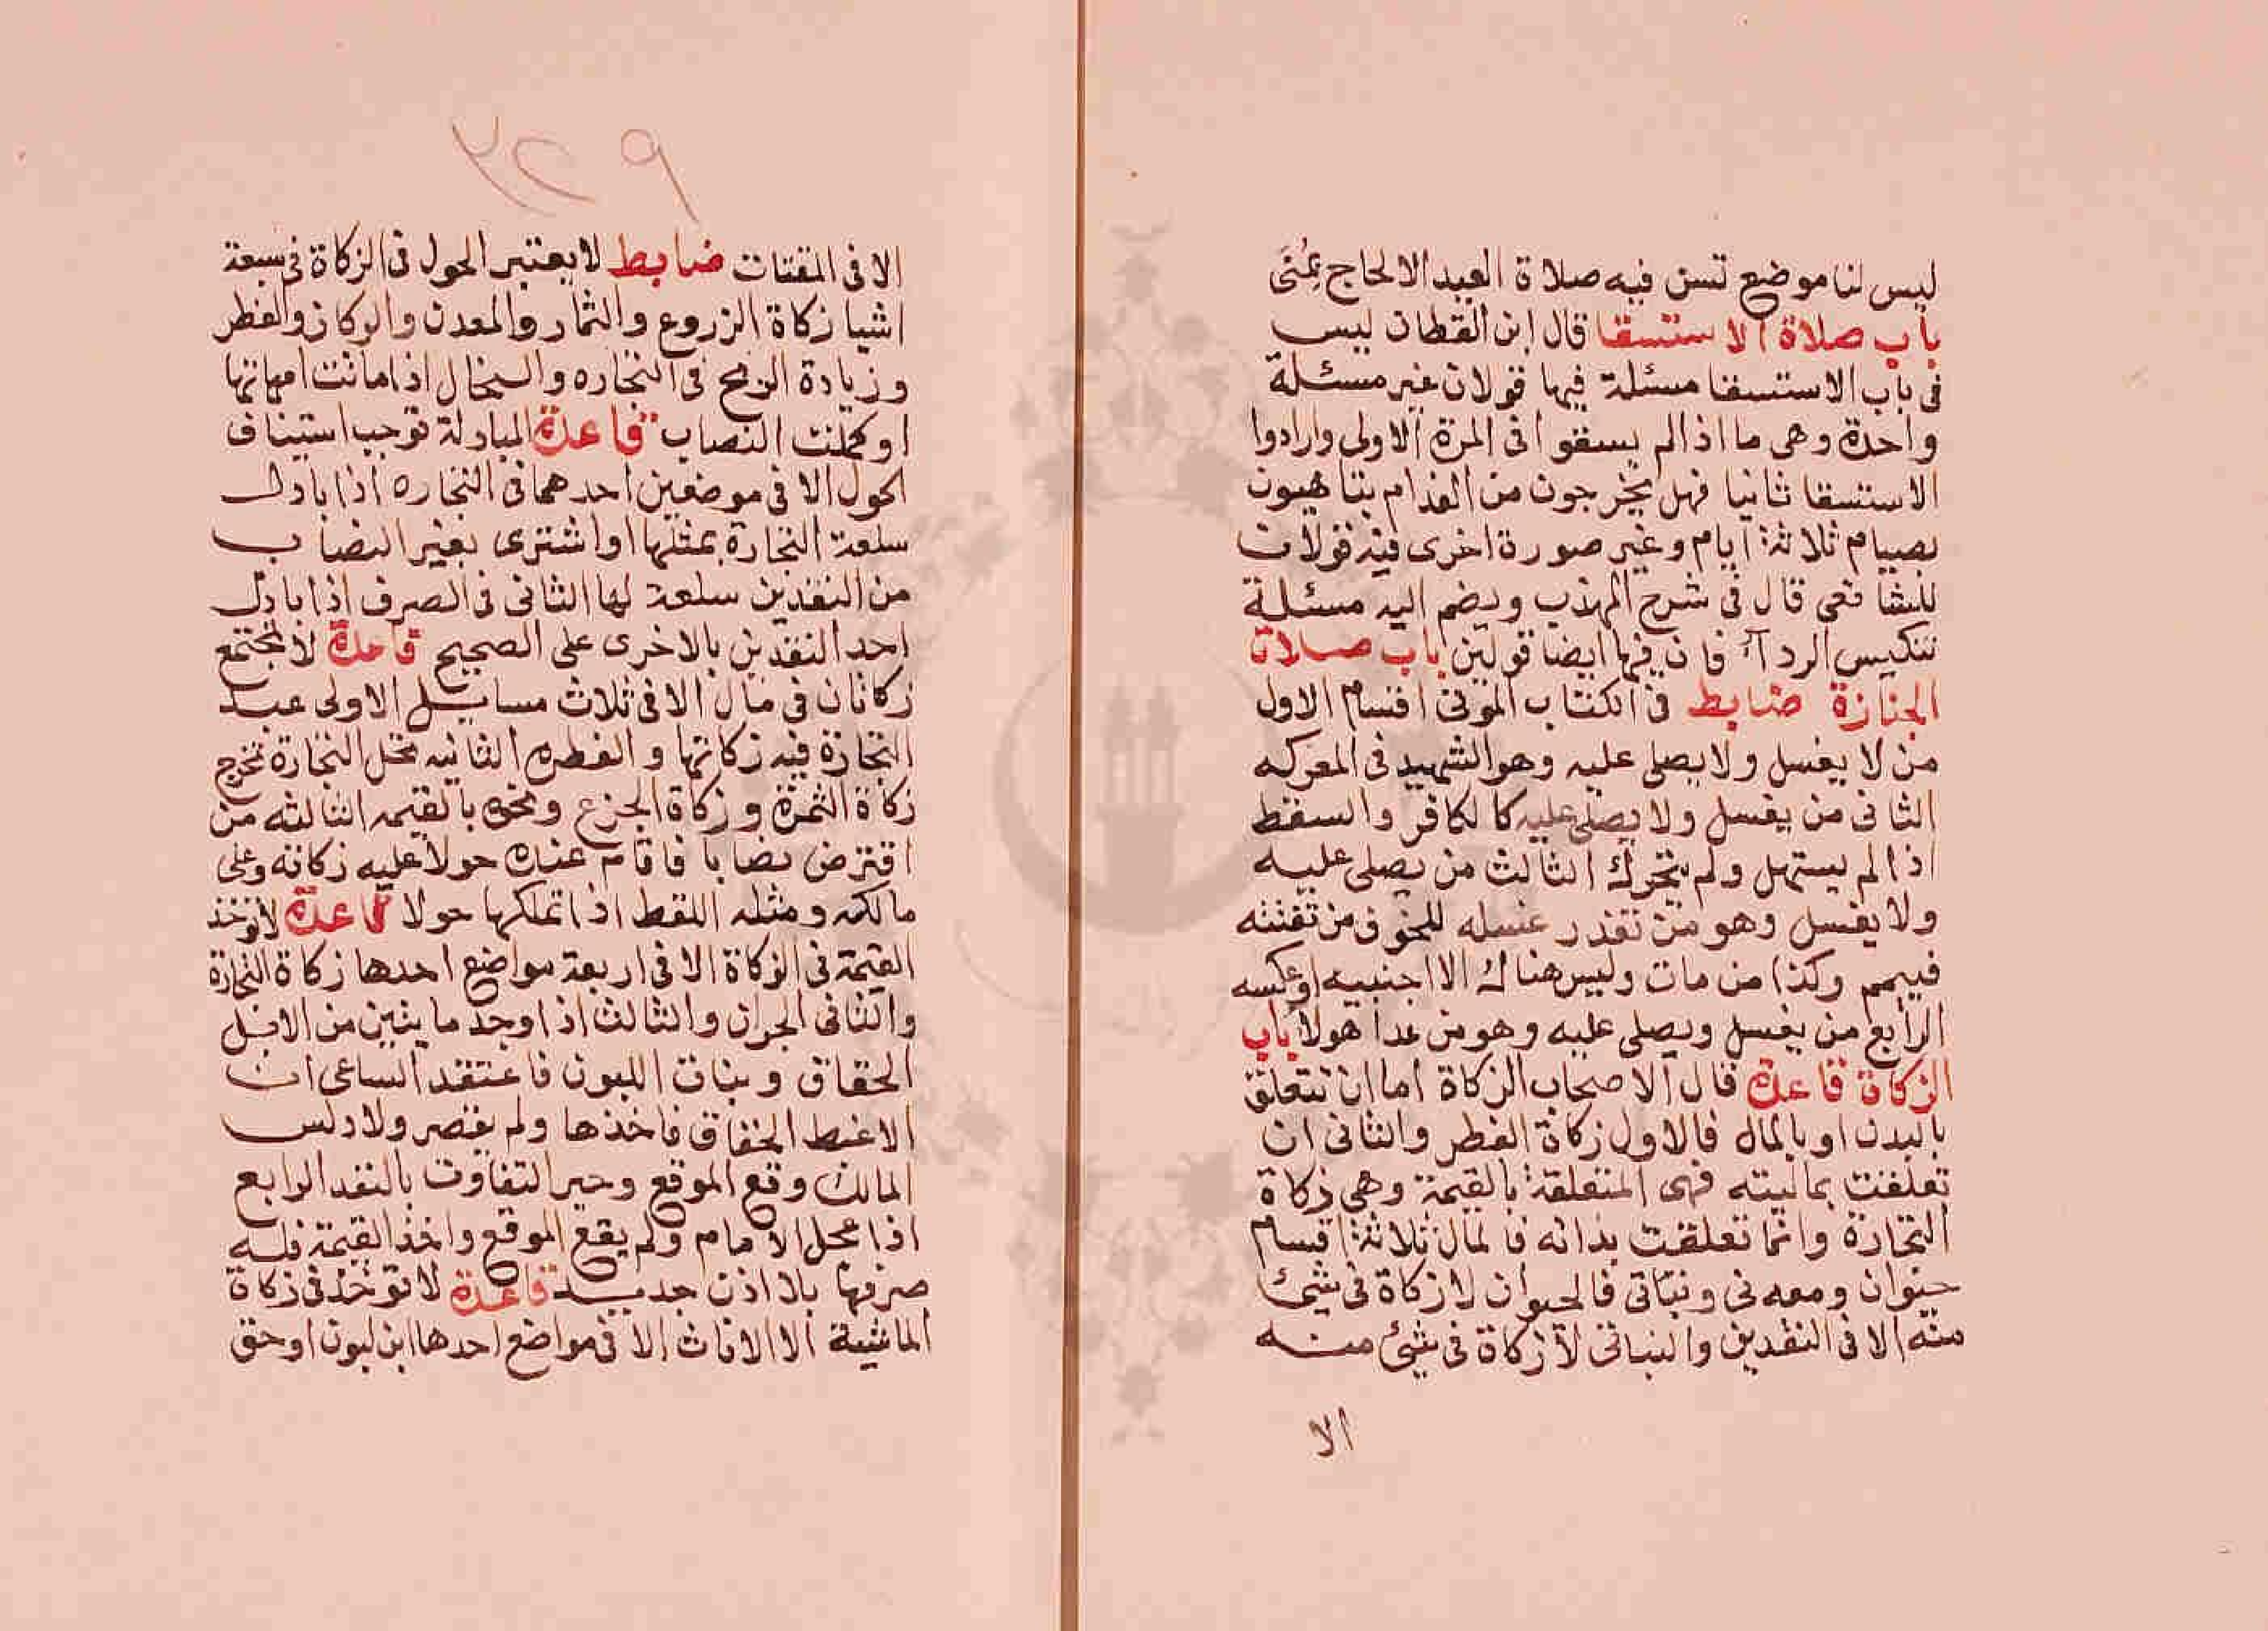 ليس لنا موضع تسن فيه صلاة العيد الا لحاج بمنى
باب صلاة الاستسقا قال ابن القطان ليس
فى باب الاستسقا مسئلة فيها قولان غير مسئلة
واحدة وهى ما اذا لم يسقوا فى المرة الاولى وارادوا
الاستسقا ثانيا فهل يخرجون من الغد ام يتاهبون
بصيام ثلاثة ايام وغير صورة اخرى فيه قولان
للشافعى قال فى شرح المهذب ويضم اليه مسئلة
تنكيس الردآء فان فيها ايضا قولين باب صلاة
الجنازة ضابط فى الكتاب الموتى اقسام الاول
من لا يغسل ولا يصلى عليه وهو الشهيد فى المعركه
الثانى من يغسل ولا يصلى عليه كالكافر والسقط
اذا لم يستهل ولم يتحرك الثالث من يصلى عليه
ولا يغسل وهو من تعذر غسله للخوف من تفتته
فييمم وكذا من مات وليس هناك الا اجنبيه او عكسه
الرابع من يغسل ويصلى عليه وهو من عدا هولا باب
الزكاة قاعدة قال الاصحاب الزكاة اما ان تتعلق
بالبدن او بالمال فالاول زكاة الفطر والثانى ان
تعلقت بماليته فهى المتعلقة بالقيمة وهى زكاة
التجارة وانما تعلقت بذاته فالمال ثلاثة اقسام
حيوان ومعدنى ونباتى فالحيوان لا زكاة فى شيئ
منه الا فى النقدين والنباتى لا زكاة فى شيئ منه
الا
٢٢٩
الا فى المقتات ضابط لا يعتبر الحول فى الزكاة فى سبعة
اشيا زكاة الزروع والثمار والمعدن والركاز والفطر
وزيادة الربح فى التجاره والسخال اذا ماتت امهاتها
او كملت النصاب قاعدة المبادلة توجب استيناف
الحول الا فى موضعين احدهما فى التجاره اذا بادل
سلعة التجارة بمثلها او اشترى بغير النصاب
من النقدين سلعة لها الثانى فى الصرف اذا بادل
احد النقدين بالاخرى على الصحيح قاعدة لا تجتمع
زكاتان فى مال الا فى ثلاث مسايل الاولى عبد
التجارة فيه زكاتها والفطره الثانيه نخل التجارة تخرج
زكاة الثمرة وزكاة الجزع ونحوه بالقيمه الثالثه من
اقترض نصابا فاقام عنده حولا عليه زكاته وعلى
مالكه ومثله اللقط اذا تملكها حولا قاعدة لا توخذ
القيمة فى الزكاة الا فى اربعة مواضع احدها زكاة التجارة
والثانى الجبران والثالث اذا وجد مايتين من الابل
الحقاق وبنات اللبون فاعتقد الساعى ان
الاغبط الحقاق فاخذها ولم يقصر ولا دلس
المالك وقع الموقع وجبر التفاوت بالنقد الرابع
اذا عجل الامام ولم يقع الموقع واخذ القيمة فله
صرفها بلا اذن جديد قاعدة لا توخذ فى زكاة
الماشية الا الاناث الا فى مواضع احدها ابن لبون او حق